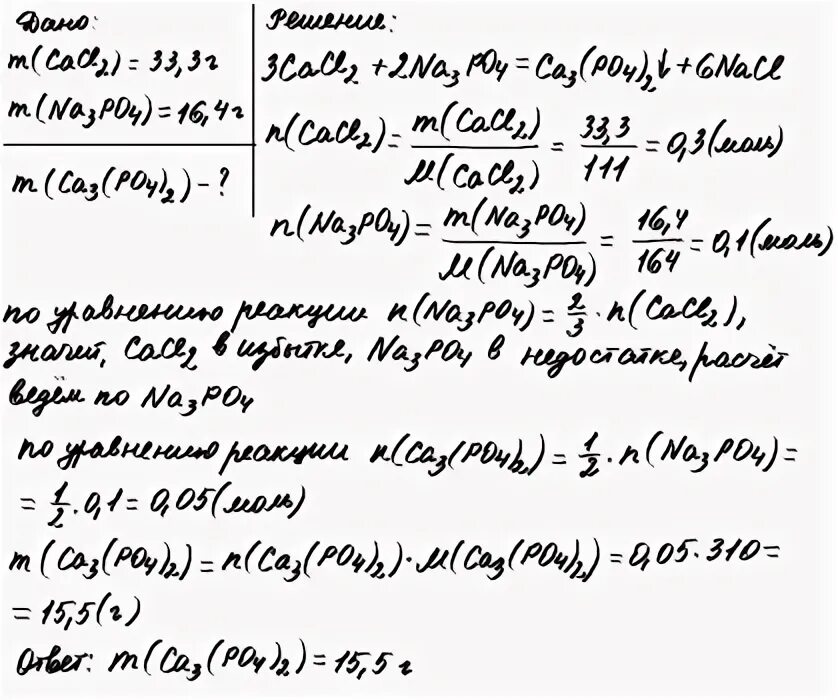 Дано:
m(CaCl₂) = 33,3г
m(Na₃PO₄) = 16,4г
m(Ca₃(PO₄)₂) - ?
Решение:
3CaCl₂ + 2Na₃PO₄ = Ca₃(PO₄)₂↓ + 6NaCl
n(CaCl₂) = m(CaCl₂) / M(CaCl₂) = 33,3 / 111 = 0,3 (моль)
n(Na₃PO₄) = m(Na₃PO₄) / M(Na₃PO₄) = 16,4 / 164 = 0,1 (моль)
по уравнению реакции n(Na₃PO₄) = 2/3 · n(CaCl₂),
значит, CaCl₂ в избытке, Na₃PO₄ в недостатке, расчёт
ведём по Na₃PO₄
по уравнению реакции n(Ca₃(PO₄)₂) = 1/2 · n(Na₃PO₄) =
= 1/2 · 0,1 = 0,05 (моль)
m(Ca₃(PO₄)₂) = n(Ca₃(PO₄)₂) · M(Ca₃(PO₄)₂) = 0,05 · 310 =
= 15,5 (г)
Ответ: m(Ca₃(PO₄)₂) = 15,5 г